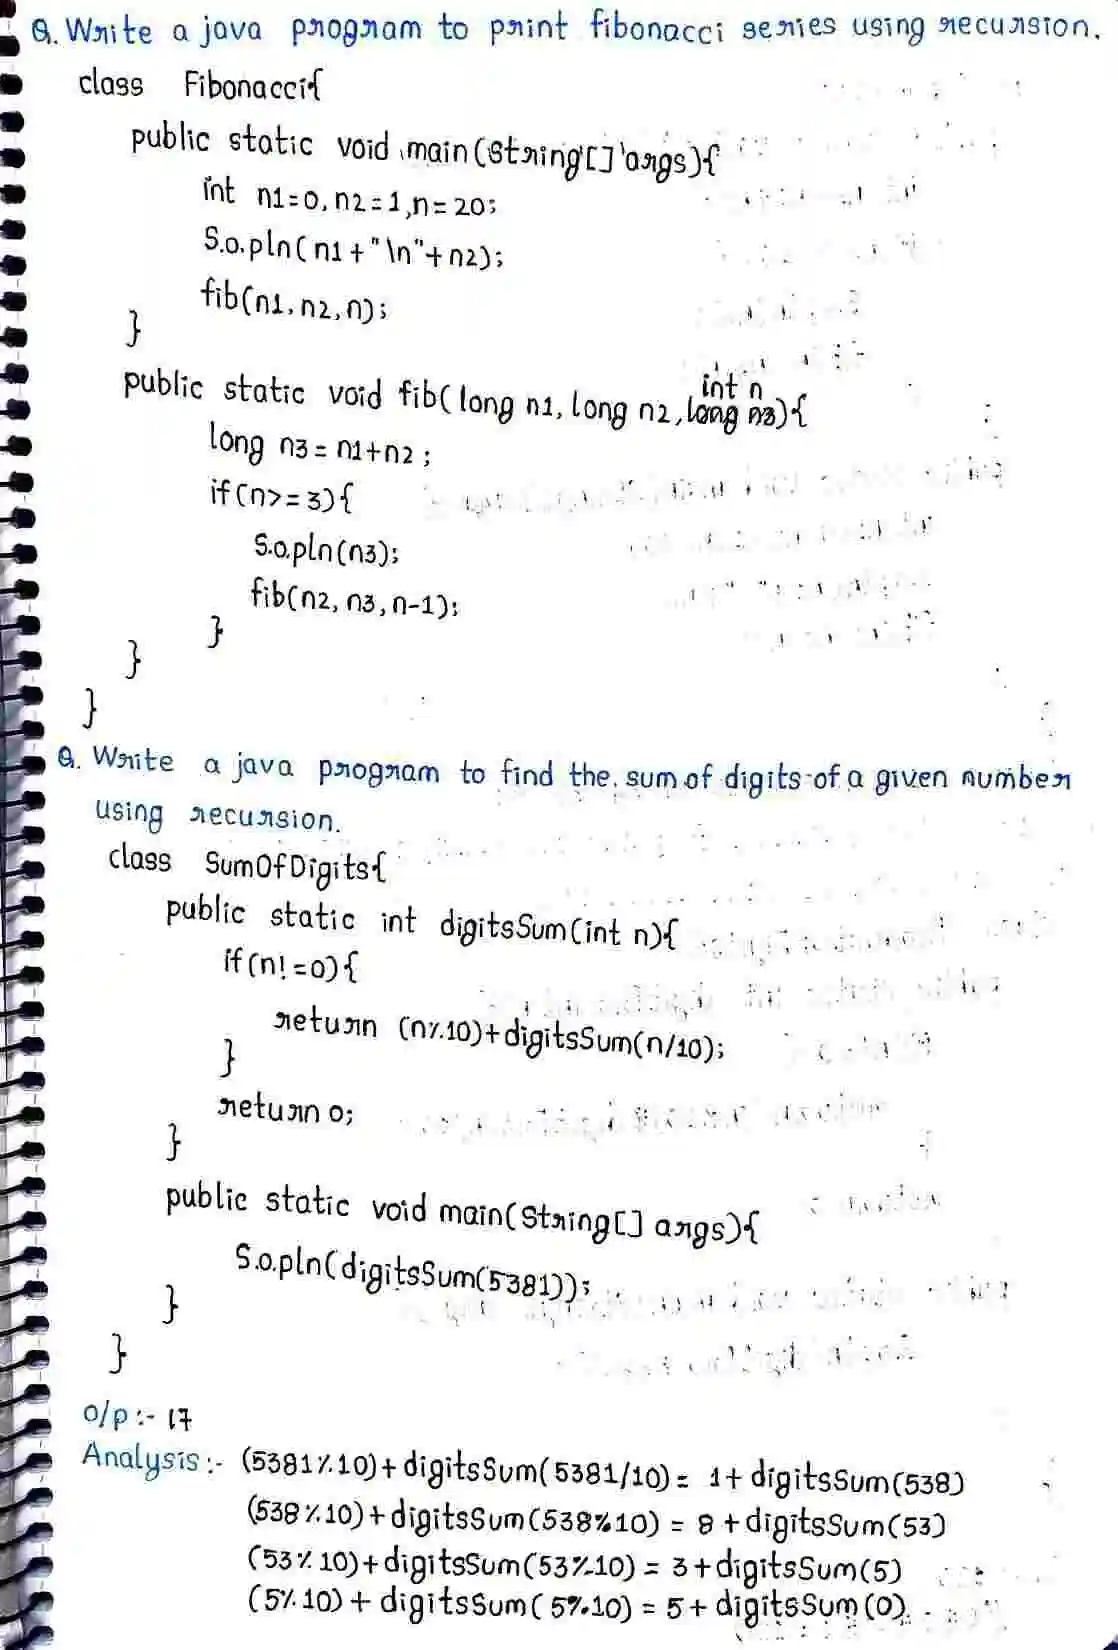 Q. Write a java program to print fibonacci series using recursion.
class Fibonacci{
public static void main(String[] args){
int n1=0, n2=1,n=20;
S.o.pln(n1+"\n"+n2);
fib(n1, n2, n);
}
int n
public static void fib(long n1, long n2, long n3){
long n3=n1+n2;
if(n>=3){
S.o.pln(n3);
fib(n2, n3, n-1);
}
}
}
Q. Write a java program to find the sum of digits of a given number
using recursion.
class SumOfDigits{
public static int digitsSum(int n){
if(n!=0){
return (n%10)+digitsSum(n/10);
}
return 0;
}
public static void main(String[] args){
S.o.pln(digitsSum(5381));
}
}
o/p :- 17
Analysis:- (5381%10)+digitsSum(5381/10) = 1+digitsSum(538)
(538%10)+digitsSum(538%10) = 8+digitsSum(53)
(53%10)+digitsSum(53%10) = 3+digitsSum(5)
(5%10)+digitsSum(5%10) = 5+digitsSum(0)